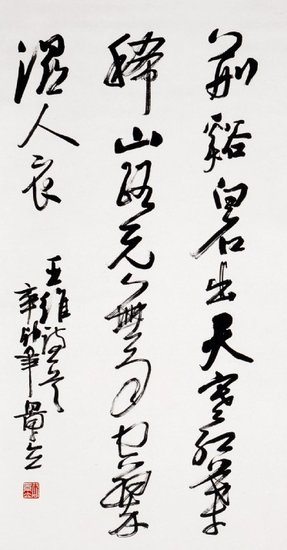 荆谿白石出天寒红叶
稀山路元无雨空翠
湿人衣
王维诗意
辛卯年